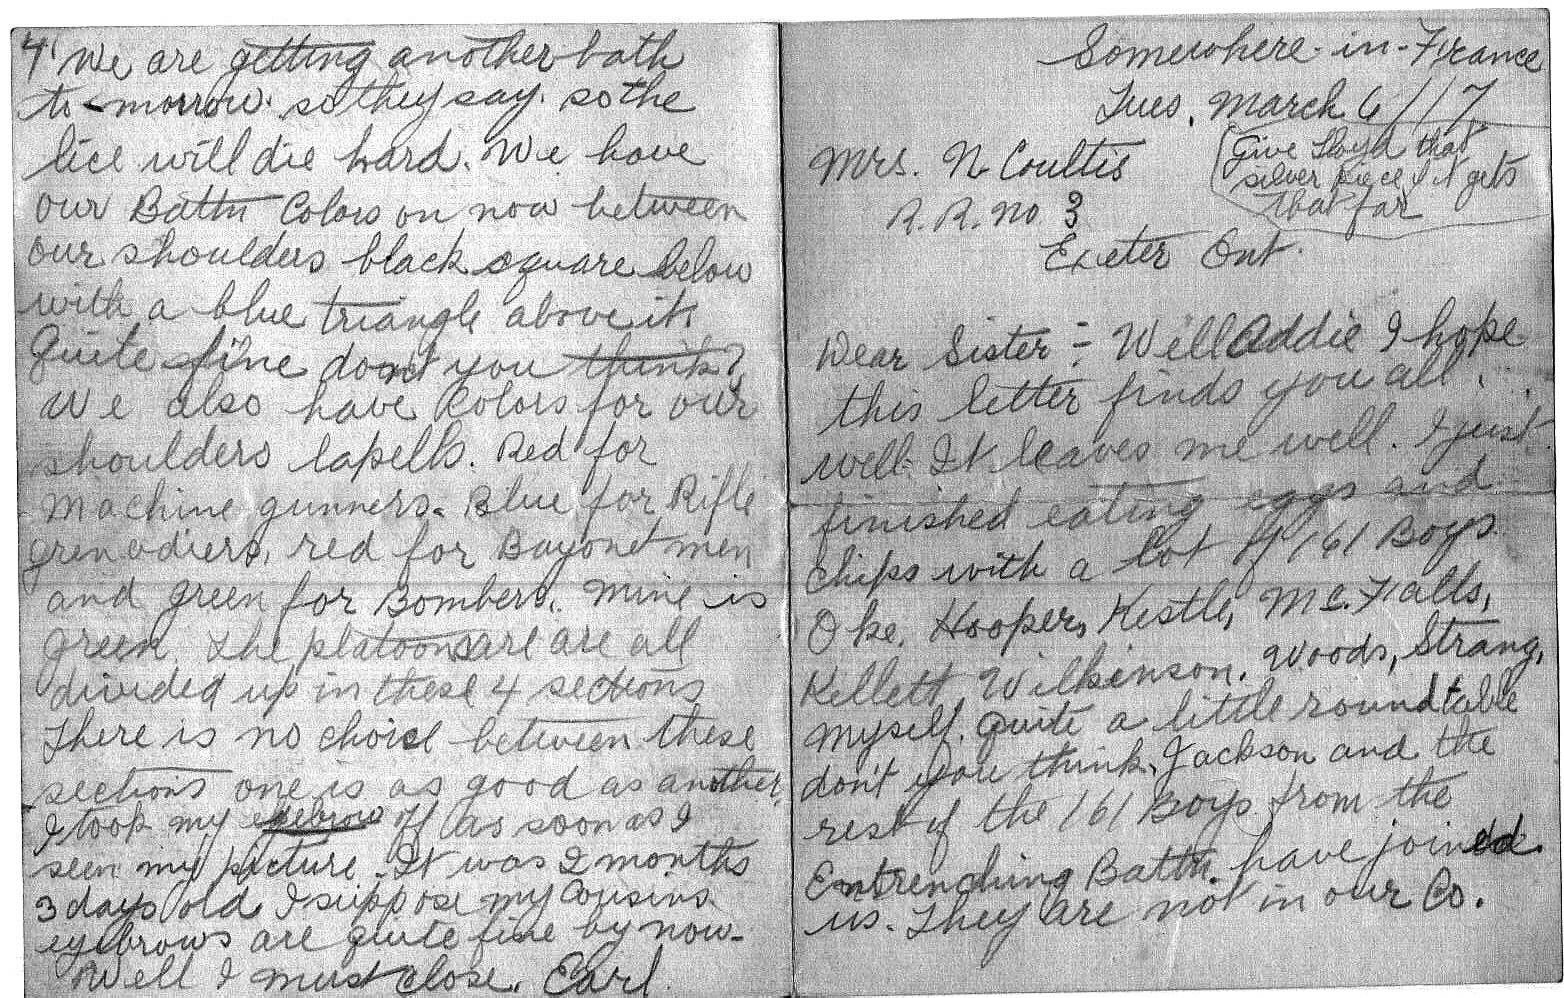 4 We are getting another bath
to-morrow. so they say. so the
lice will die hard. We have
our Battn Colors on now between
our shoulders black square below
with a blue triangle above it.
Quite fine dont you think?
We also have Colors for our
shoulders lapells. Red for
Machine gunners. Blue for Rifle
grenadiers, red for Bayonet men
and green for Bombers. Mine is
green. The platoons are are all
divided up in these 4 sections
There is no choice between these
sections one is as good as another.
I took my eyebrow off as soon as I
seen my picture. It was 2 months
3 days old I suppose my Cousins
eyebrows are quite fine by now.
Well I must close. Earl.
Somewhere-in-France
Tues. March 6/17
(Give Lloyd that
silver piece if it gets
that far
Mrs. N Coultis
R.R. no 3
Exeter Ont.
Dear Sister:- Well Addie I hope
this letter finds you all
well. It leaves me well. I just
finished eating eggs and
chips with a lot of 161 Boys.
Oke, Hooper, Kestle, Mc.Falls,
Kellett, Wilkinson, Woods, Strang,
myself. quite a little roundtable
don't you think. Jackson and the
rest of the 161 Boys from the
Entrenching Battn. have joined
us. They are not in our Co.